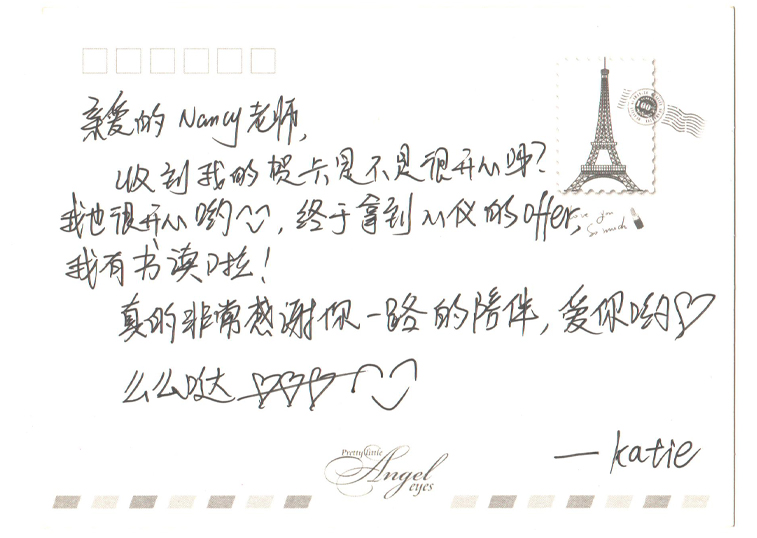 亲爱的 Nancy 老师,
收到我的贺卡是不是很开心呀?
我也很开心哟, 终于拿到心仪的offer,
So much
我有书读啦!
真的非常感谢你一路的陪伴, 爱你哟
么么哒
Pretty little
Angel
eyes
— katie